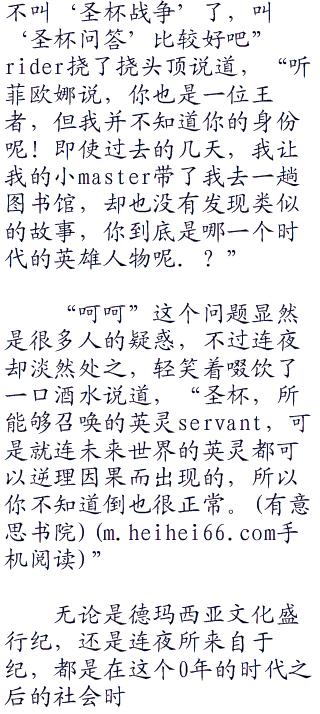 不叫‘圣杯战争’了，叫
‘圣杯问答’比较好吧”
rider挠了挠头顶说道，“听
菲欧娜说，你也是一位王
者，但我并不知道你的身份
呢！即使过去的几天，我让
我的小master带了我去一趟
图书馆，却也没有发现类似
的故事，你到底是哪一个时
代的英雄人物呢．？”
“呵呵”这个问题显然
是很多人的疑惑，不过连夜
却淡然处之，轻笑着啜饮了
一口酒水说道，“圣杯，所
能够召唤的英灵servant，可
是就连未来世界的英灵都可
以逆理因果而出现的，所以
你不知道倒也很正常。(有意
思书院)(m.heihei66.com手
机阅读)”
无论是德玛西亚文化盛
行纪，还是连夜所来自于
纪，都是在这个0年的时代之
后的社会时